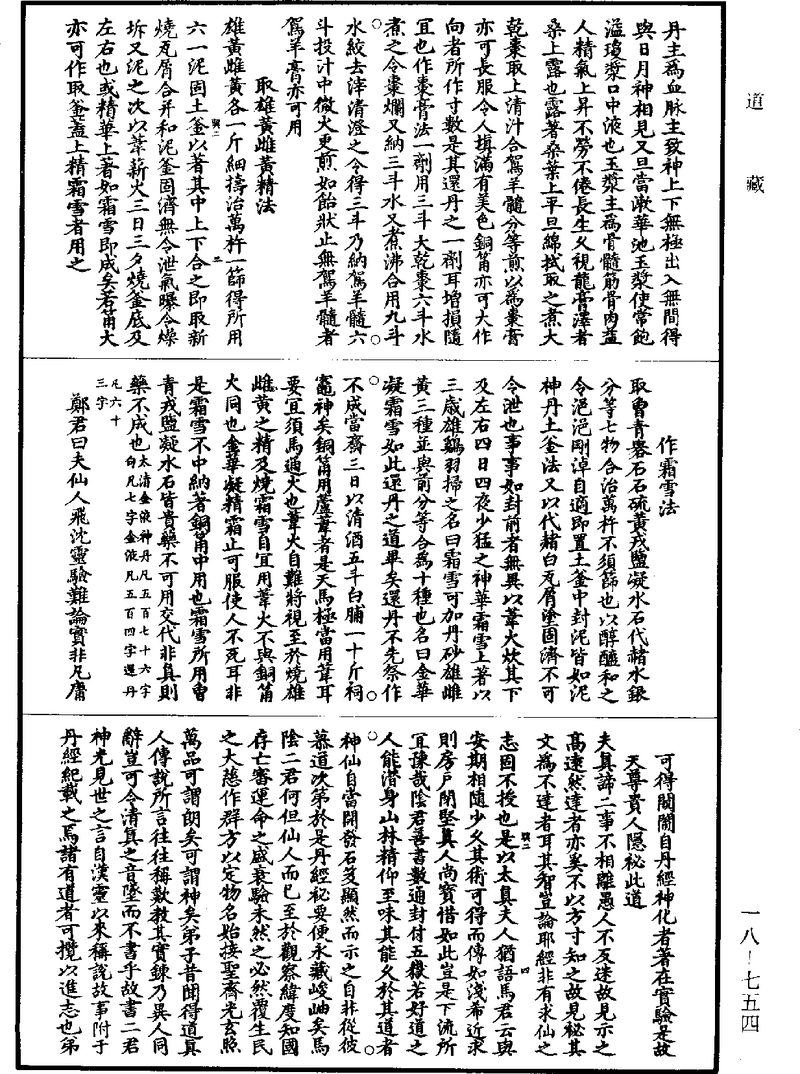 道藏
丹主為血脉主致神上下無極出入無間得
與日月神相見又旦當漱華池玉漿使常飽
溢㺞漿口中液也玉漿主為骨髓筋骨肉益
人精氣上昇不勞不倦長生久視龍膏澤者
桑上露也露著桑葉上平旦綿拭取之煮大
乾棗取上清汁合駕羊髓分等煎以為棗膏
亦可長服令人填滿有美色銅筩亦可大作
向者所作寸數是其還丹之一劑耳增損隨
宜也作棗膏法一劑用三斗大乾棗六斗水
煮之令棗爛又納三斗水又煮沸合用九斗
水絞去滓清澄之令得三斗乃納駕羊髓六
斗投汁中微火更煎如飴狀止無駕羊髓者
駕羊膏亦可用
取雄黃雌黃精法
雄黃雌黃各一斤細擣治萬杵一篩得所用
六一泥固土釜以著其中上下合之即取新
燒瓦屑合并和泥釜固濟無令泄氣曝令燥
坼又泥之次以葦薪火三日三夕燒釜底及
左右也或精華上著如霜雪即成矣若筩大
亦可作取釜蓋上精霜雪者用之
作霜雪法
取曾青礜石石硫黃戎鹽凝水石代赭水銀
分等七物合治萬杵不須篩也以醇醯和之
令浥浥剛淖自適即置土釜中封泥皆如泥
神丹土釜法又以代赭白瓦屑塗固濟不可
令泄也事事如封前者無異以葦火炊其下
及左右四日四夜少猛之神華霜雪上著以
三歲雄鷄羽掃之名曰霜雪可加丹砂雄雌
黃三種並與前分等合為十種也名曰金華
凝霜雪如此還丹之道畢矣還丹不先祭作
不成當齋三日以清酒五斗白脯一十斤祠
竈神矣銅筩用蘆葦者是天馬極當用葦耳
要宜須馬通火也葦火自難將視至於燒雄
雌黃之精及燒霜雪自宜用葦火不與銅筩
大同也金華凝精霜止可服使人不死耳非
是霜雪不中納著銅筩中用也霜雪所用曾
青戎鹽凝水石皆貴藥不可用交代非真則
藥不成也太清金液神丹凡五百七十六字
白凡七字金液凡五百四字還丹
凡六十
三字
鄭君曰夫仙人飛沈靈驗難論實非凡庸
可得闚𨵦自丹經神化者著在實驗是故
天尊貴人隱祕此道
夫真諦二事不相離愚人不反迷故見示之
高遠然達者亦奚不以方寸知之故見秘其
文為不達者耳其智豈論耶經非有求仙之
志固不授也是以太真夫人猶語馬君云與
安期相隨少久其術可得而傳如淺希近求
則房戶閉堅真人尚寶惜如此豈是下流所
宜諫哉陰君善書數通封付五嶽若好道之
人能潛身山林精仰至味其能久於其道者
神仙自當開發石笈顯然而示之自非從彼
慕道次第於是丹經秘要便永藏峻岫矣馬
陰二君何但仙人而已至於觀察緯度知國
存亡審運命之盛衰驗未然之必然覆生民
之大慈作群方以定物名始接聖齊光玄照
萬品可謂朗矣可謂神矣弟子昔聞得道真
人傳說所言往往稱歎教其實鍊乃異人同
辭豈可令清真之音墜而不書乎故書二君
神光見世之言自漢靈以來稱說故事附于
丹經紀載之焉諸有道者可攬以進志也弟
一八-七五四